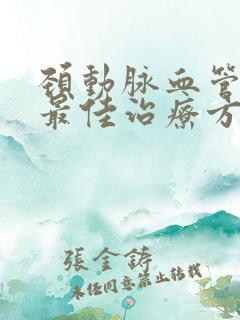 頸動脈血管
最佳治療方
張金鑄
未經同意禁止轉載